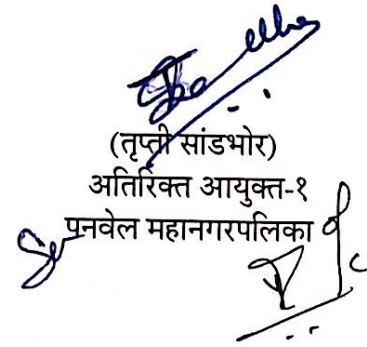 (तृप्ती सांडभोर)
अतिरिक्त आयुक्त-१
पनवेल महानगरपलिका